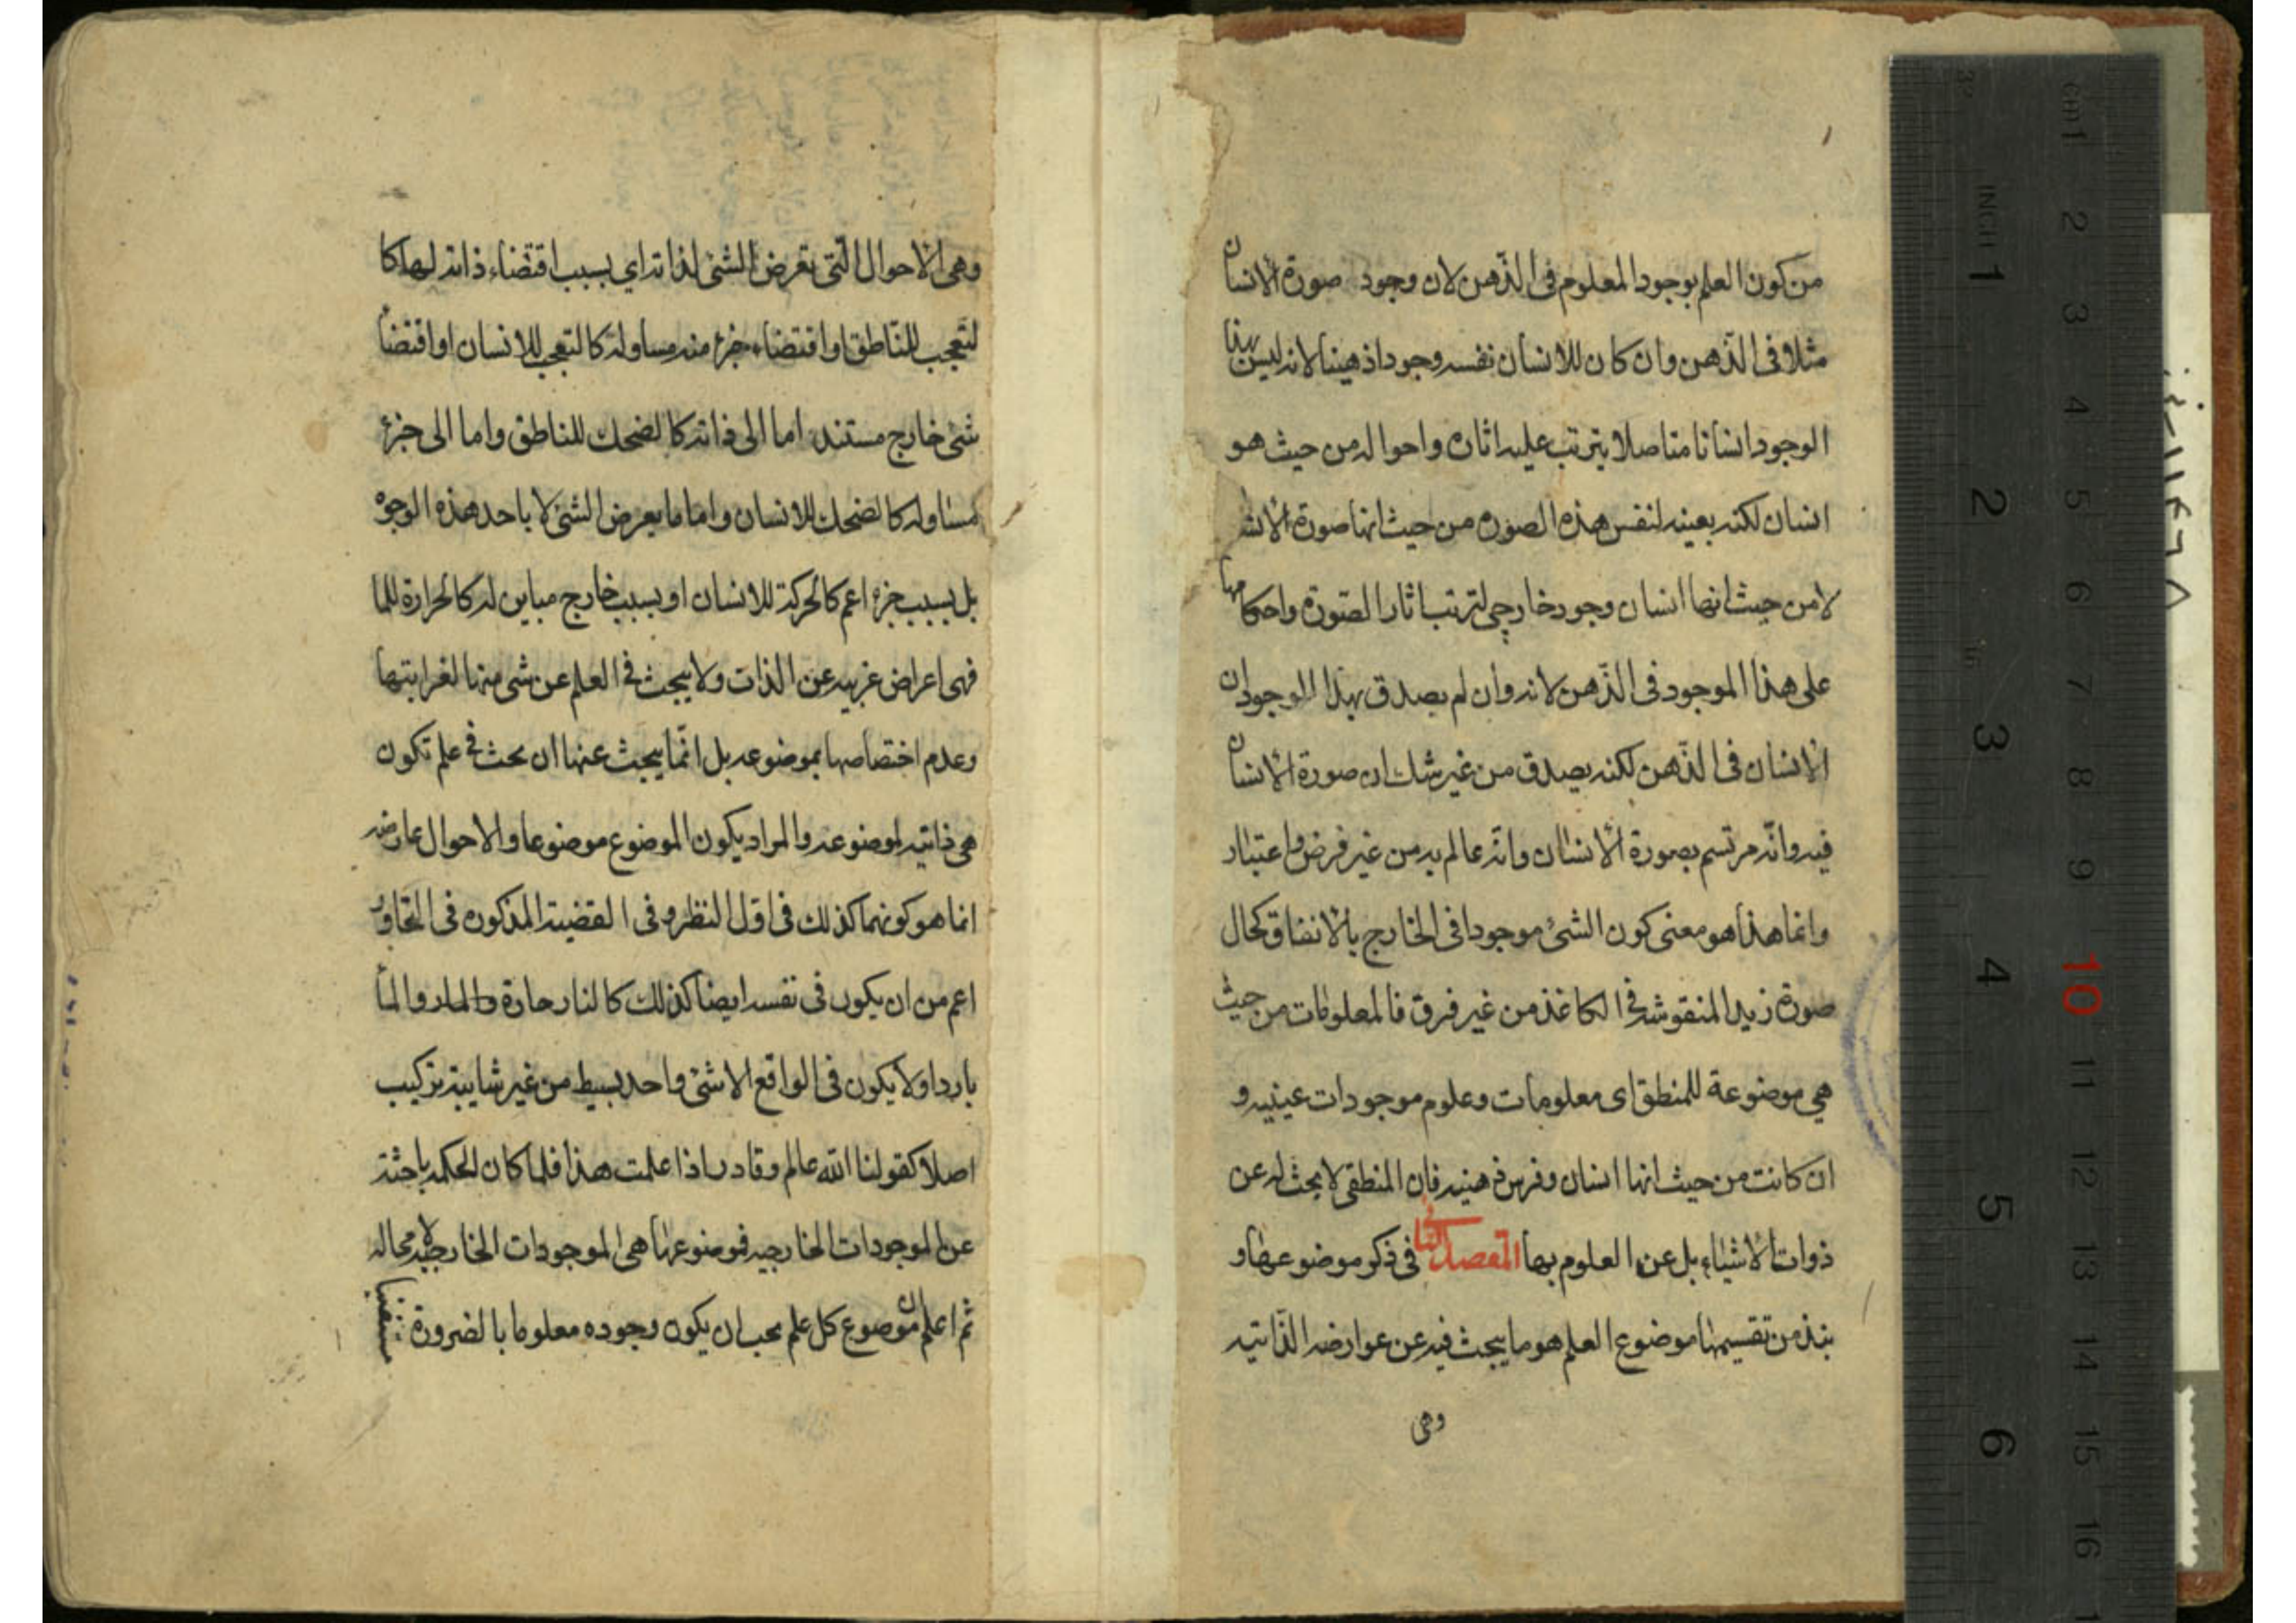 من كون العلم بوجود المعلوم فى الذّهن لان وجود صورة الانسان
مثلا فى الذّهن وان كان للانسان نفسه وجودا ذهينا لانه ليس بهذا
الوجود انسانا متاصلا يترتب عليه اثاره واحواله من حيث هو
انسان لكنه بعينه لنفس هذه الصوره من حيث انها صورة الانسا
لا من حيث انها انسان وجود خارجى لترتب اثار الصّورة واحكامها
على هذا الموجود فى الذّهن لانه وان لم يصدق بهذا الوجود ان
الانسان فى الذّهن لكنه يصدق من غير شك ان صورة الانسان
فيه وانّه مرتسم بصورة الانسان وانّه عالم به من غير فرض واعتبار
وانما هذا هو معنى كون الشئ موجودا فى الخارج بالاتفاق كحال
صورة زيد المنقوشه فى الكاغذ من غير فرق فالمعلومات من حيث
هى موضوعة للمنطق اى معلومات وعلوم موجودات عينيه و
ان كانت من حيث انها انسان وفرس ذهنيه فان المنطقى لا يبحث له عن
ذوات الاشياء بل عن العلوم بها المقصد الثانى فى ذكر موضوعها و
نبذ من تقسيمها موضوع العلم هو ما يبحث فيه عن عوارضه الذّاتيه
وهى
وهى الاحوال الّتى تعرض الشئ لذاته اى بسبب اقتضاء ذاته لها كا
لتعجب للنّاطق او اقتضاء جزء منه مساو له كالتعجب للانسان او اقتضأ
شئ خارج مستند اما الى ذاته كالضحك للناطق واما الى جزء
مساو له كالضحك للانسان واما ما يعرض الشئ لا باحد هذه الوجوه
بل بسبب جزء اعم كالحركة للانسان او بسبب خارج مباين له كالحرارة للما
فهى اعراض غريبه عن الذات ولا يبحث فى العلم عن شى منها لغرابتها
وعدم اختصاصها بموضوعه بل انّما يبحث عنها ان بحث فى علم تكون
هى ذاتيه لموضوعه والمراد بكون الموضوع موضوعا والاحوال عارضه
انما هو كونهما كذلك فى اول النظر وفى القضية المذكوره فى التحاور
اعم من ان يكون فى نفسه ايضا كذلك كالنار حارة والمأ
باردا ولا يكون فى الواقع الا شئ واحد بسيط من غير شايبة تركيب
اصلا كقولنا الله عالم وقادر اذا علمت هذا فلما كان الحكمه باحثة
عن الموجودات الخارجيه فموضوعها هى الموجودات الخارجيه لا محاله
ثم اعلم ان موضوع كل علم يجب ان يكون وجوده معلوما بالضرورة